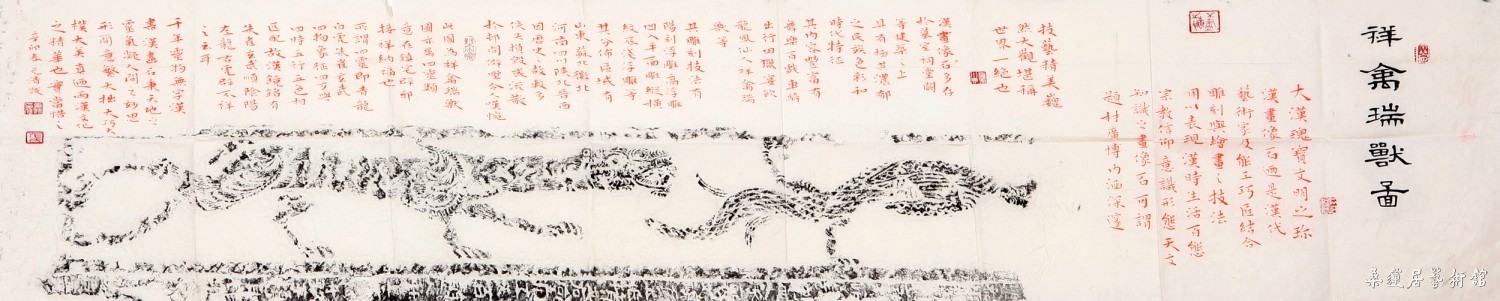 祥禽瑞獸圖
大漢瑰寶文明之珎
漢畫像石画是漢代
藝術家及能工巧匠结合
雕刻與繪畫之技法
用以表現漢時生活百態
宗教信仰意識形態天文
知識之畫像石可謂
題材廣博內涵深邃
技藝精美巍
然大觀堪稱
世界一絕也
漢畫像石多存
於墓室祠堂闕
等建築之上
具有極其濃郁
之民族色彩和
時代特征
其内容豐富有
舞樂百戲車騎
出行田獵宴飲
龍鳳仙人祥禽瑞
獸等
其雕刻技法有
陰刻浮雕高浮雕
凹入平面雕縱橫
紋底淺浮雕等
其分佈區域有
山東蘇北衡北
河南四川陝北晋西
因歷史之故數多
佚失損毀或流散
於邦間游墅令人嘆惋
此圖為祥禽瑞獸
圖亦為四靈類
意在鎮宅辟邪
接祥納福也
所謂四靈即青龍
白虎朱雀玄武
四物象征四方與
四時五行五色相
匹配故漢鏡銘有
朱雀玄武順陰陽
左龍右虎辟不祥
之至耳
千年靈物無字漢
書漢畫石秉天地之
靈氣凝人间之妙思
形簡意繁大拙大巧大
樸大美真画兩漢文化
之精華也實當惜之
辛卯春
桑蓮居藝術館